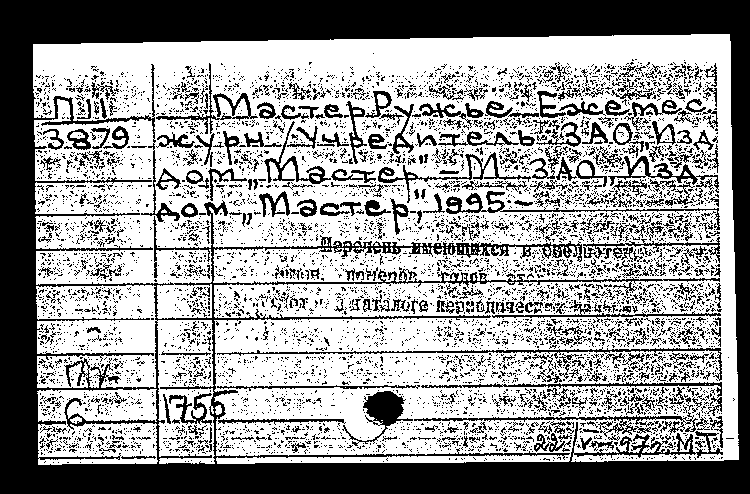 П 11
3879
МастерРужьё: Ежемес.
журн./Учредитель: ЗАО „Изд.
дом „Мастер". – М.: ЗАО „Изд.
дом „Мастер", 1995 –
Перечень имеющихся в библиотеке
номеров, годов
в каталоге периодических
6 1755
22/V – 97г. М.Т.